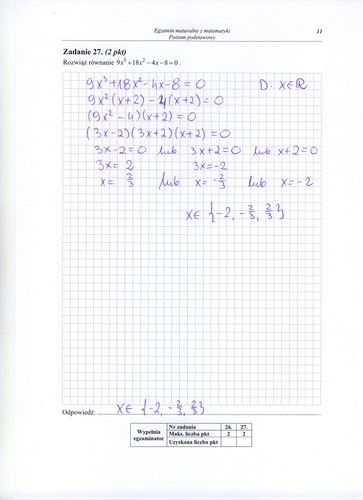 Egzamin maturalny z matematyki
Poziom podstawowy
11
Zadanie 27. (2 pkt)
Rozwiąż równanie 9x³+18x²−4x−8=0.
9x³+18x²−4x−8=0 D: x∈ℝ
9x²(x+2)−4(x+2)=0
(9x²−4)(x+2)=0
(3x−2)(3x+2)(x+2)=0
3x−2=0 lub 3x+2=0 lub x+2=0
3x=2 3x=−2
x=2/3 lub x=−2/3 lub x=−2
x∈{−2, −2/3, 2/3}
Odpowiedź: x∈{−2, −2/3, 2/3}
Wypełnia egzaminator Nr zadania 26. 27.
Maks. liczba pkt 2 2
Uzyskana liczba pkt